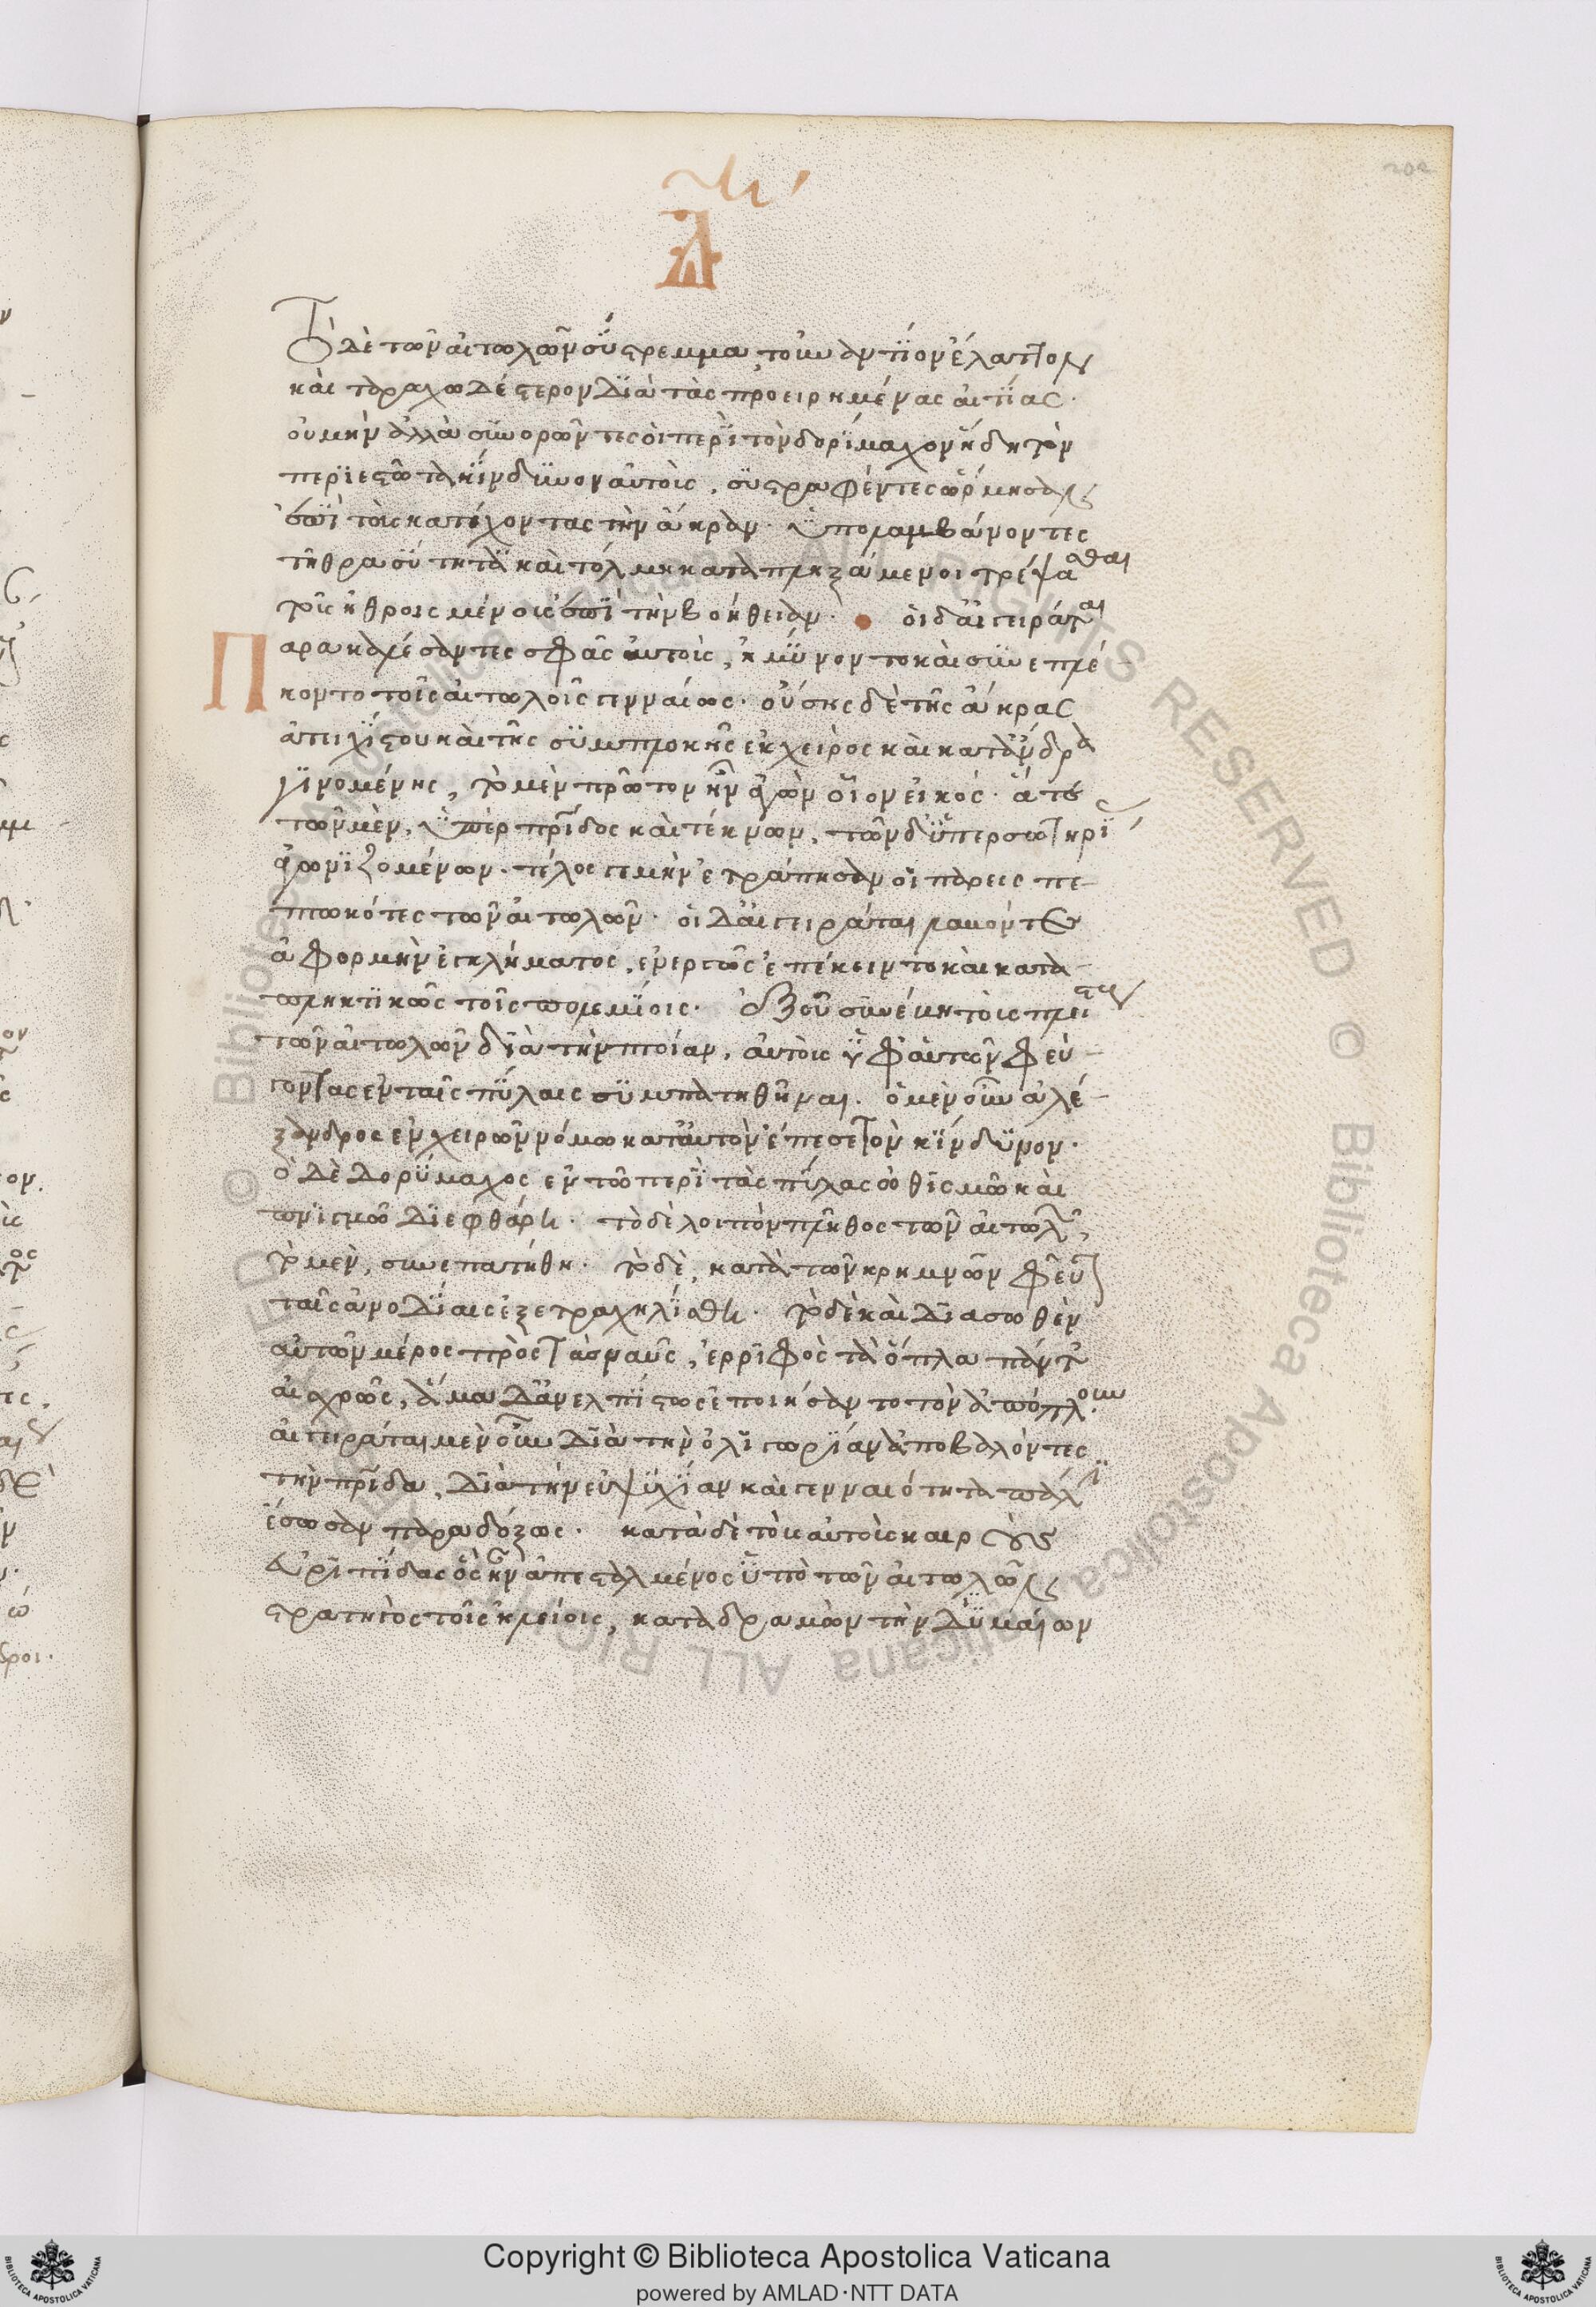 Τὸ δὲ τῶν αἰτωλῶν σύστρεμμα, τοὐναντίον ἔλαττον
καὶ ταραχωδέστερον διὰ τὰς προειρημένας αἰτίας·
οὐ μὴν ἀλλὰ συνορῶντες οἱ περὶ τὸν δορίμαχον ἤδη τὸν
περιεστῶτα κίνδυνον αὐτοὺς, συστραφέντες ὥρμησαν
ἐπὶ τοὺς κατέχοντας τὴν ἄκραν· ὑπολαμβάνοντες
τῆ θρασύτητι καὶ τόλμη καταπληξάμενοι τρέψασθαι
τοὺς ἠθροισμένους ἐπὶ τὴν βοήθειαν· οἱ δ' αἰγειράται
Παρακαλέσαντες σφᾶς αὐτοὺς, ἠμύνοντο καὶ συνεπλέ-
κοντο τοῖς αἰτωλοῖς γενναίως· οὔσης δὲ τῆς ἄκρας
ἀτειχίστου καὶ τῆς συμπλοκῆς ἐκ χειρὸς καὶ κατ' ἄνδρα
γινομένης, τὸ μὲν πρῶτον ἦν ἀγὼν οἷον εἰκός· ἅτε
τῶν μὲν, ὑπὲρ πατρίδος καὶ τέκνων, τῶν δ' ὑπὲρ σωτηρίας
ἀγωνιζομένων· τέλος γε μὴν ἐτράπησαν οἱ παρεισπε-
πτωκότες τῶν αἰτωλῶν· οἱ δ' αἰγειράται λαβόντες
ἀφορμὴν ἐγκλήματος, ἐνεργῶς ἐπέκειντο καὶ κατα-
πληκτικῶς τοῖς πολεμίοις· ἐξ οὗ συνέβη τοὺς πλείστους
τῶν αἰτωλῶν διὰ τὴν πτοίαν, αὐτοὺς ὑφ' αὑτῶν φεύ-
γοντας ἐν ταῖς πύλαις συμπατηθῆναι· ὁ μὲν οὖν ἀλέ-
ξανδρος ἐν χειρῶν νόμω κατ' αὐτὸν ἔπεσε τὸν κίνδυνον·
ὁ δὲ δορύμαχος ἐν τῶ περὶ τὰς πύλας ὠθισμῶ καὶ
πνιγμῶ διεφθάρη· τὸ δὲ λοιπὸν πλῆθος τῶν αἰτωλῶν,
τὸ μὲν, συνεπατήθη· τὸ δὲ, κατὰ τῶν κρημνῶν φεῦγον
ταῖς ἀνοδίαις ἐξετραχηλίσθη· τὸ δὲ καὶ διασωθὲν
αὐτῶν μέρος πρὸς τὰς ναῦς, ἐρριφὸς τὰ ὅπλα παντ
αἰσχρῶς, ἅμα δ' ἀνελπίστως ἐποιήσαντο τὸν ἀπόπλουν
αἰγειράται μὲν οὖν διὰ τὴν ὀλιγωρίαν ἀποβαλόντες
τὴν πατρίδα, διὰ τὴν εὐψυχίαν καὶ γενναιότητα πάλι
ἔσωσαν παραδόξως· κατὰ δὲ τοὺς αὐτοὺς καιροὺς
εὐριπίδας ὃς ἦν ἀπεσταλμένος ὑπὸ τῶν αἰτωλῶν
στρατηγὸς τοῖς ἠλείοις, καταδραμὼν τὴν δυμαίων